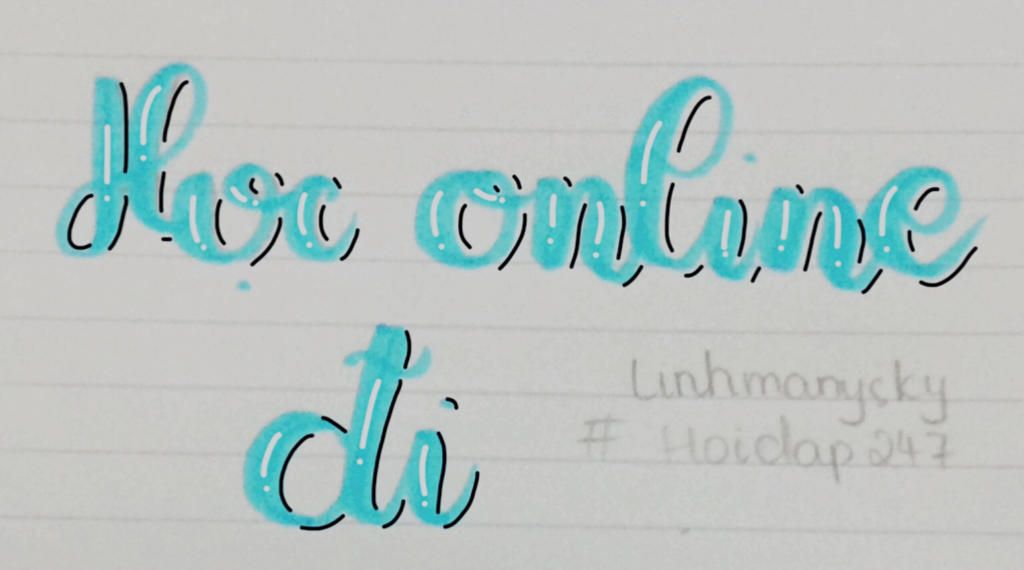 Học online
đi
Linhmanysky
# Hoidap247